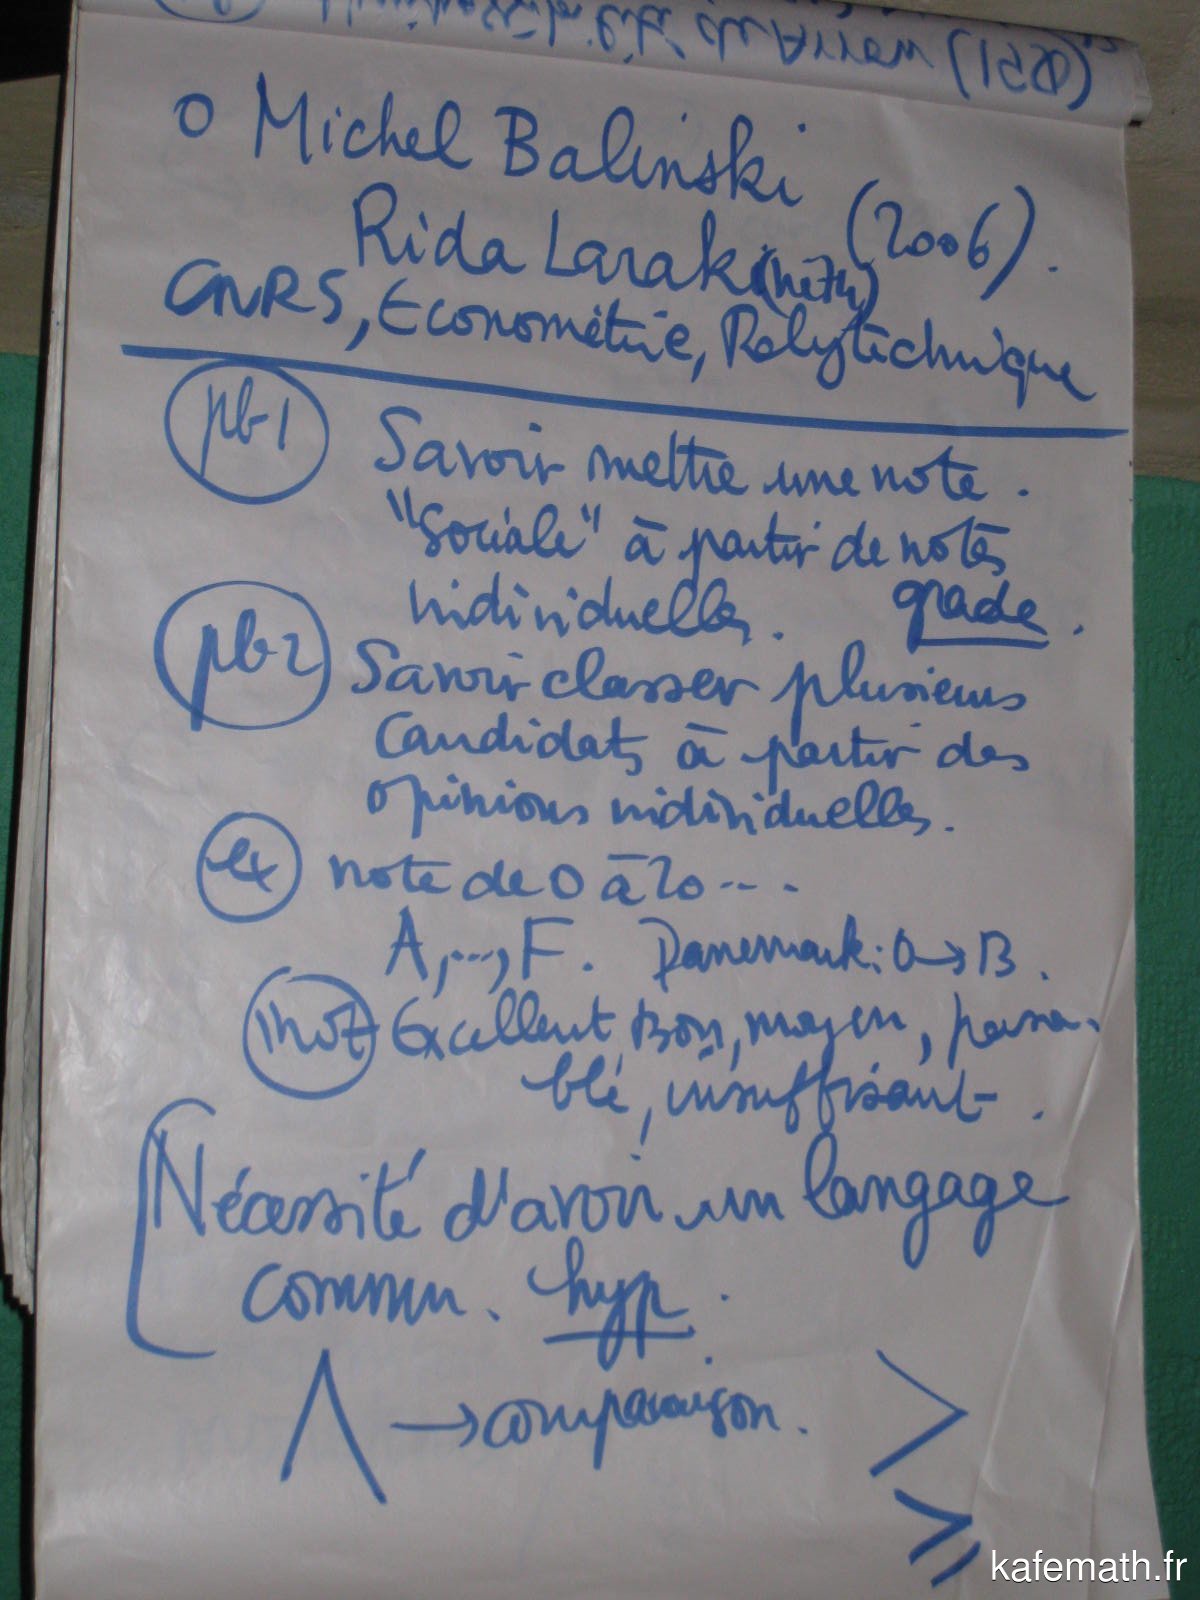 (1951)
o Michel Balinski
Rida Laraki (né 74) (2006).
CNRS, Econométrie, Polytechnique
pb 1 Savoir mettre une note.
"Sociale" à partir de notes
individuelles. grade.
pb 2 Savoir classer plusieurs
candidats à partir des
opinions individuelles.
ex note de 0 à 20 ---.
A, ..., F. Danemark: 0 → 13.
mot Excellent, Bon, moyen, passa-
ble, insuffisant.
Nécessité d'avoir un langage
commun. hyp.
Λ → comparaison. >
⩾
kafemath.fr